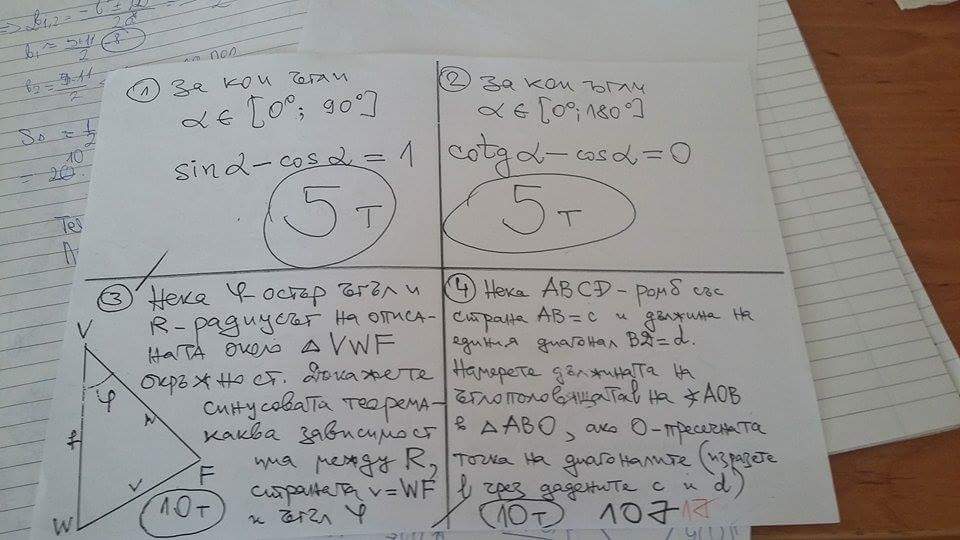 ① За кои ъгли
α ∈ [0°; 90°]
sinα – cosα = 1
5 т
② За кои ъгли
α ∈ [0°; 180°]
cotgα – cosα = 0
5 т
③ Нека φ – остър ъгъл и
R – радиусът на описа-
ната около △ VWF
окръжност. Докажете
синусовата теорема –
каква зависимост
има между R,
страната v = WF
и ъгъл φ
10 т
V
φ
f
w
F
v
W
④ Нека ABCD – ромб със
страна AB = c и дължина на
единия диагонал BD = d.
Намерете дължината на
ъглополовящата на ∢AOB
в △ ABO, ако O – пресечната
точка на диагоналите (изразете
я чрез дадените c и d)
10 т